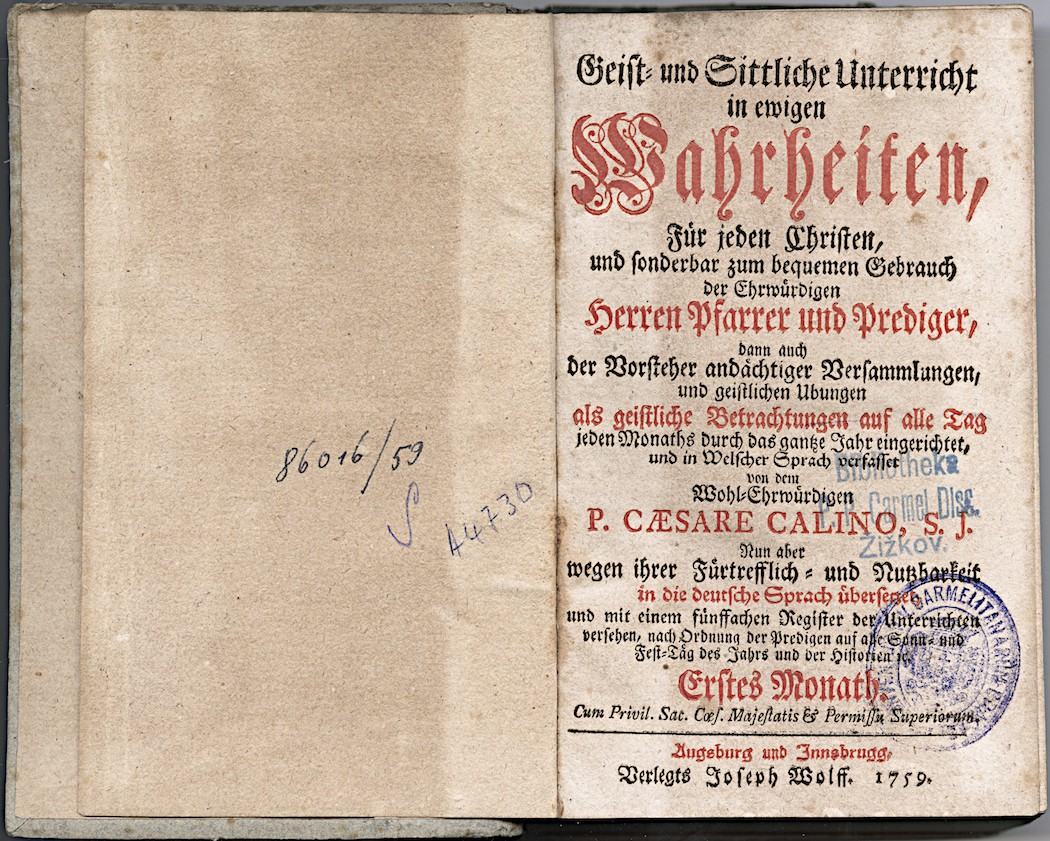 86016/59
S
A4730
Geist- und Sittliche Unterricht
in ewigen
Wahrheiten,
Für jeden Christen,
und sonderbar zum bequemen Gebrauch
der Ehrwürdigen
Herren Pfarrer und Prediger,
dann auch
der Vorsteher andächtiger Versammlungen,
und geistlichen Ubungen
als geistliche Betrachtungen auf alle Tag
jeden Monaths durch das gantze Jahr eingerichtet,
und in Welscher Sprach verfasset
von dem
Wohl-Ehrwürdigen
P. CÆSARE CALINO, S. J.
Nun aber
wegen ihrer Fürtrefflich- und Nutzbarkeit
in die deutsche Sprach übersetzet,
und mit einem fünffachen Register der Unterrichten
versehen, nach Ordnung der Predigen auf alle Sonn- und
Fest-Täg des Jahrs und der Historien ꝛc.
Erstes Monath.
Cum Privil. Sac. Cæs. Majestatis & Permissu Superiorum.
Augsburg und Innsbrugg,
Verlegts Joseph Wolff. 1759.
Bibliotheka
Carmel Disc.
Žižkov.
CARMELITANARUM